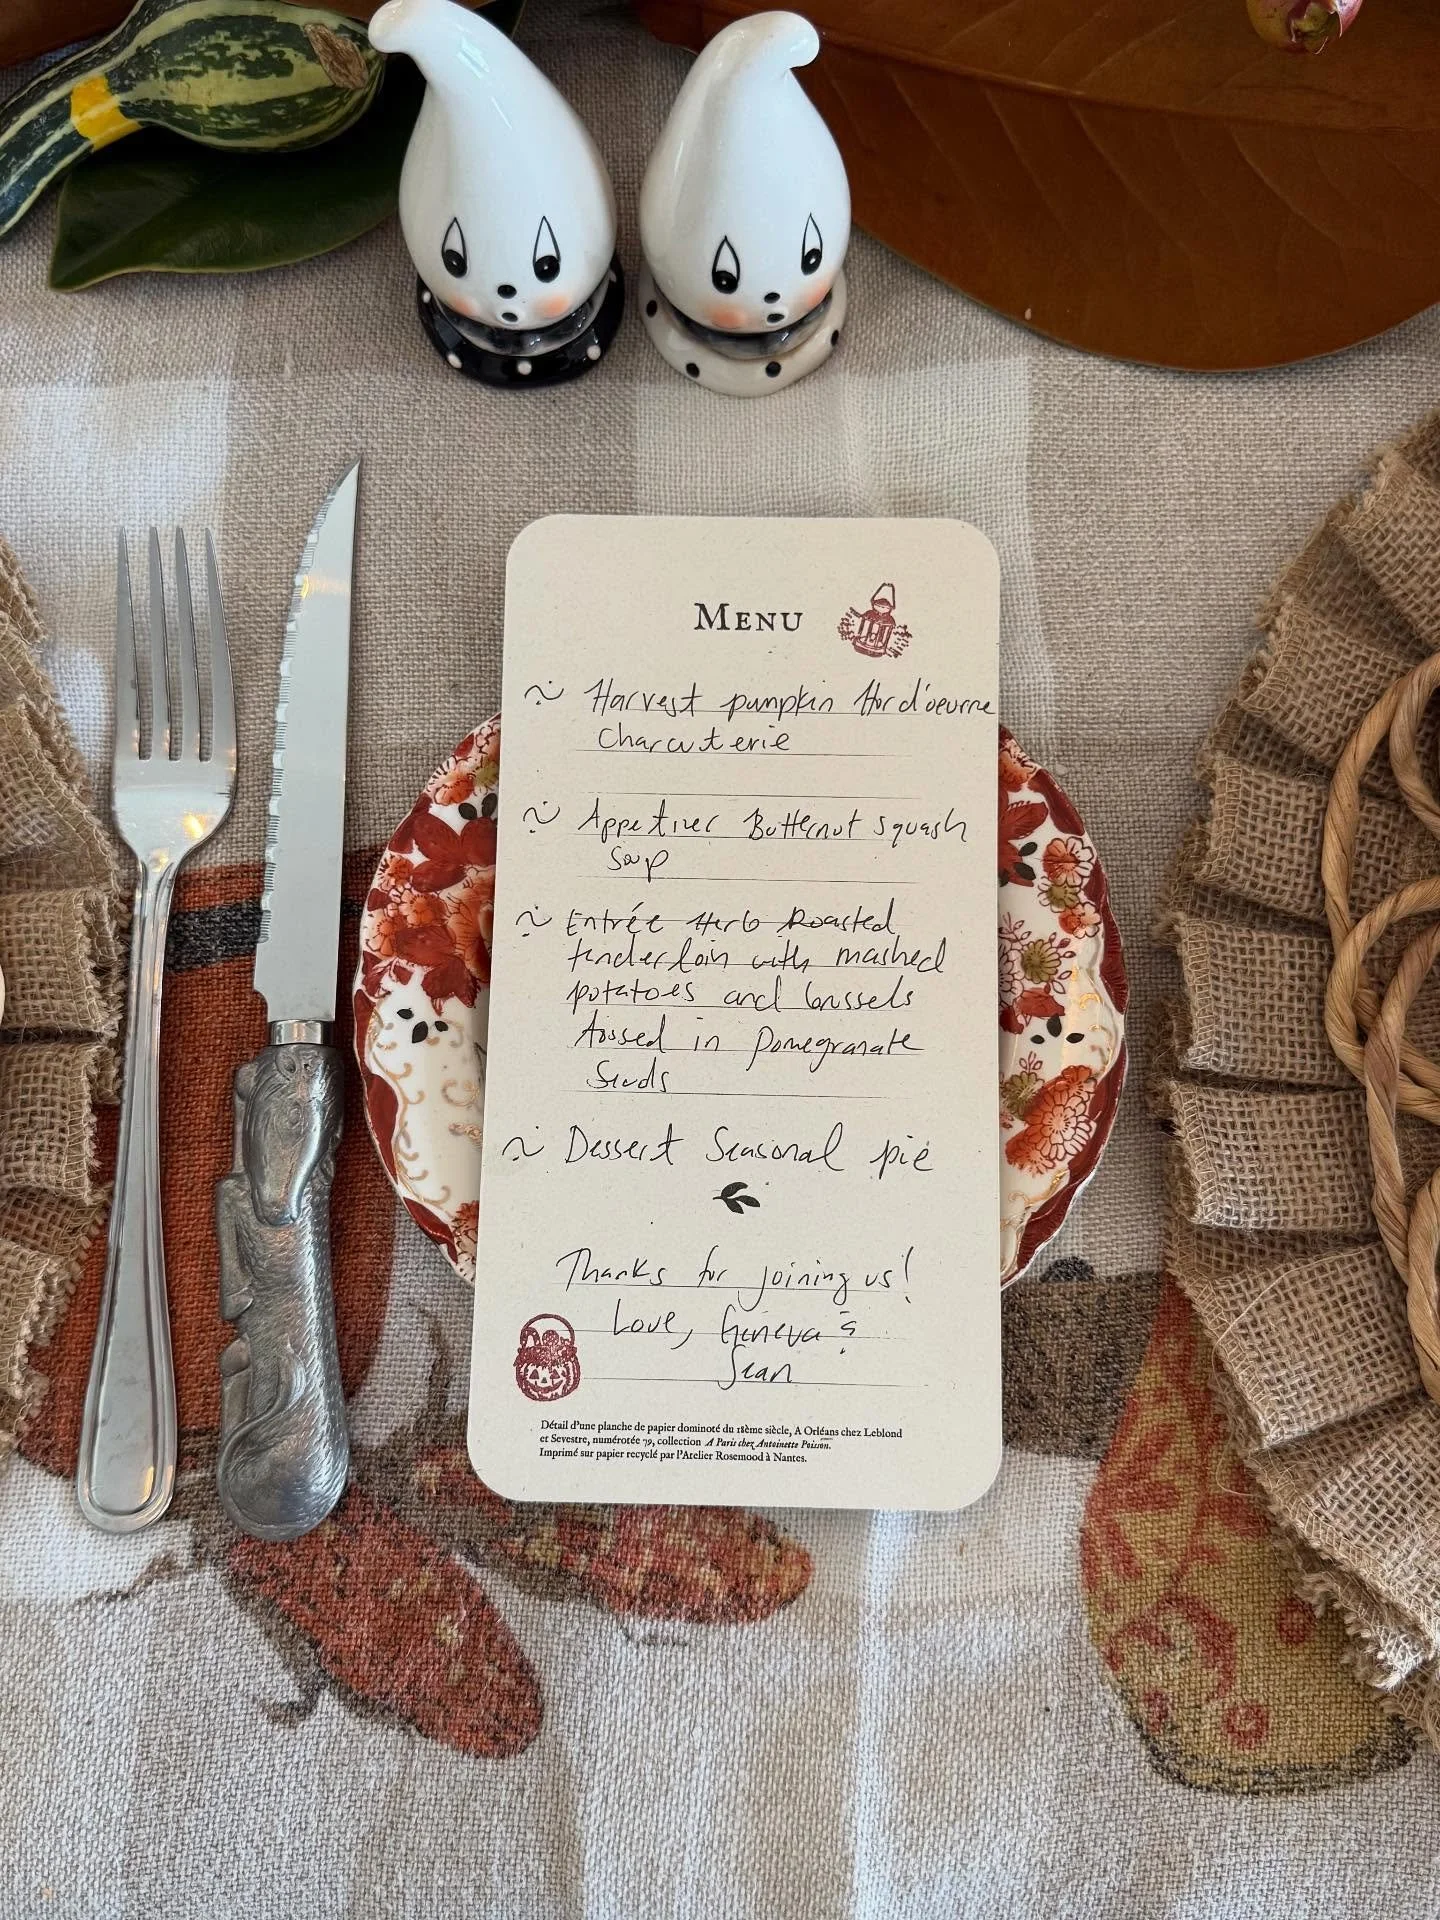 Menu
Harvest pumpkin Hor d'oeurne
Charcuterie
Appetizer Butternut squash
Soup
Entrée Herb Roasted
tenderloin with mashed
potatoes and brussels
tossed in Pomegranate
Seeds
Dessert Seasonal pie
Thanks for joining us!
Love, Geneva &
Sean
Détail d'une planche de papier dominoté du 18ème siècle, A Orléans chez Leblond
et Sevestre, numérotée 79, collection A Paris chez Antoinette Poisson.
Imprimé sur papier recyclé par l'Atelier Rosemood à Nantes.